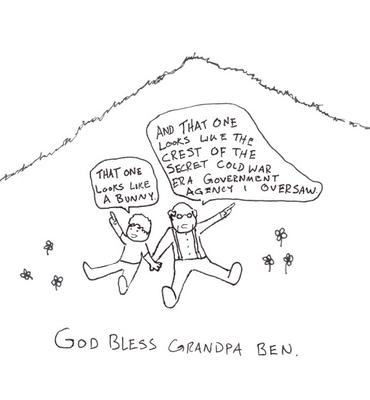 THAT ONE
LOOKS LIKE
A BUNNY.
AND THAT ONE
LOOKS LIKE THE
CREST OF THE
SECRET COLD WAR
ERA GOVERNMENT
AGENCY I OVERSAW.
GOD BLESS GRANDPA BEN.